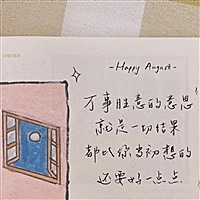 -Happy August-
万事胜意的意思
就是一切结果
都比你当初想的
还要好一点点